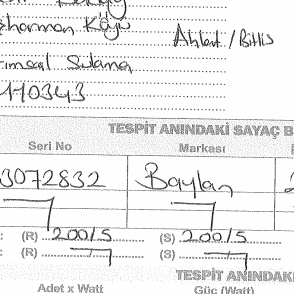 Köyü
Ahlat / Bitlis
Sulama
110343
TESPİT ANINDAKİ SAYAÇ B
Seri No Markası
3072832 Baylan
: (R) 200/5 (S) 200/5
: (R) (S)
TESPİT ANINDAKİ
Adet x Watt Güç (Watt)